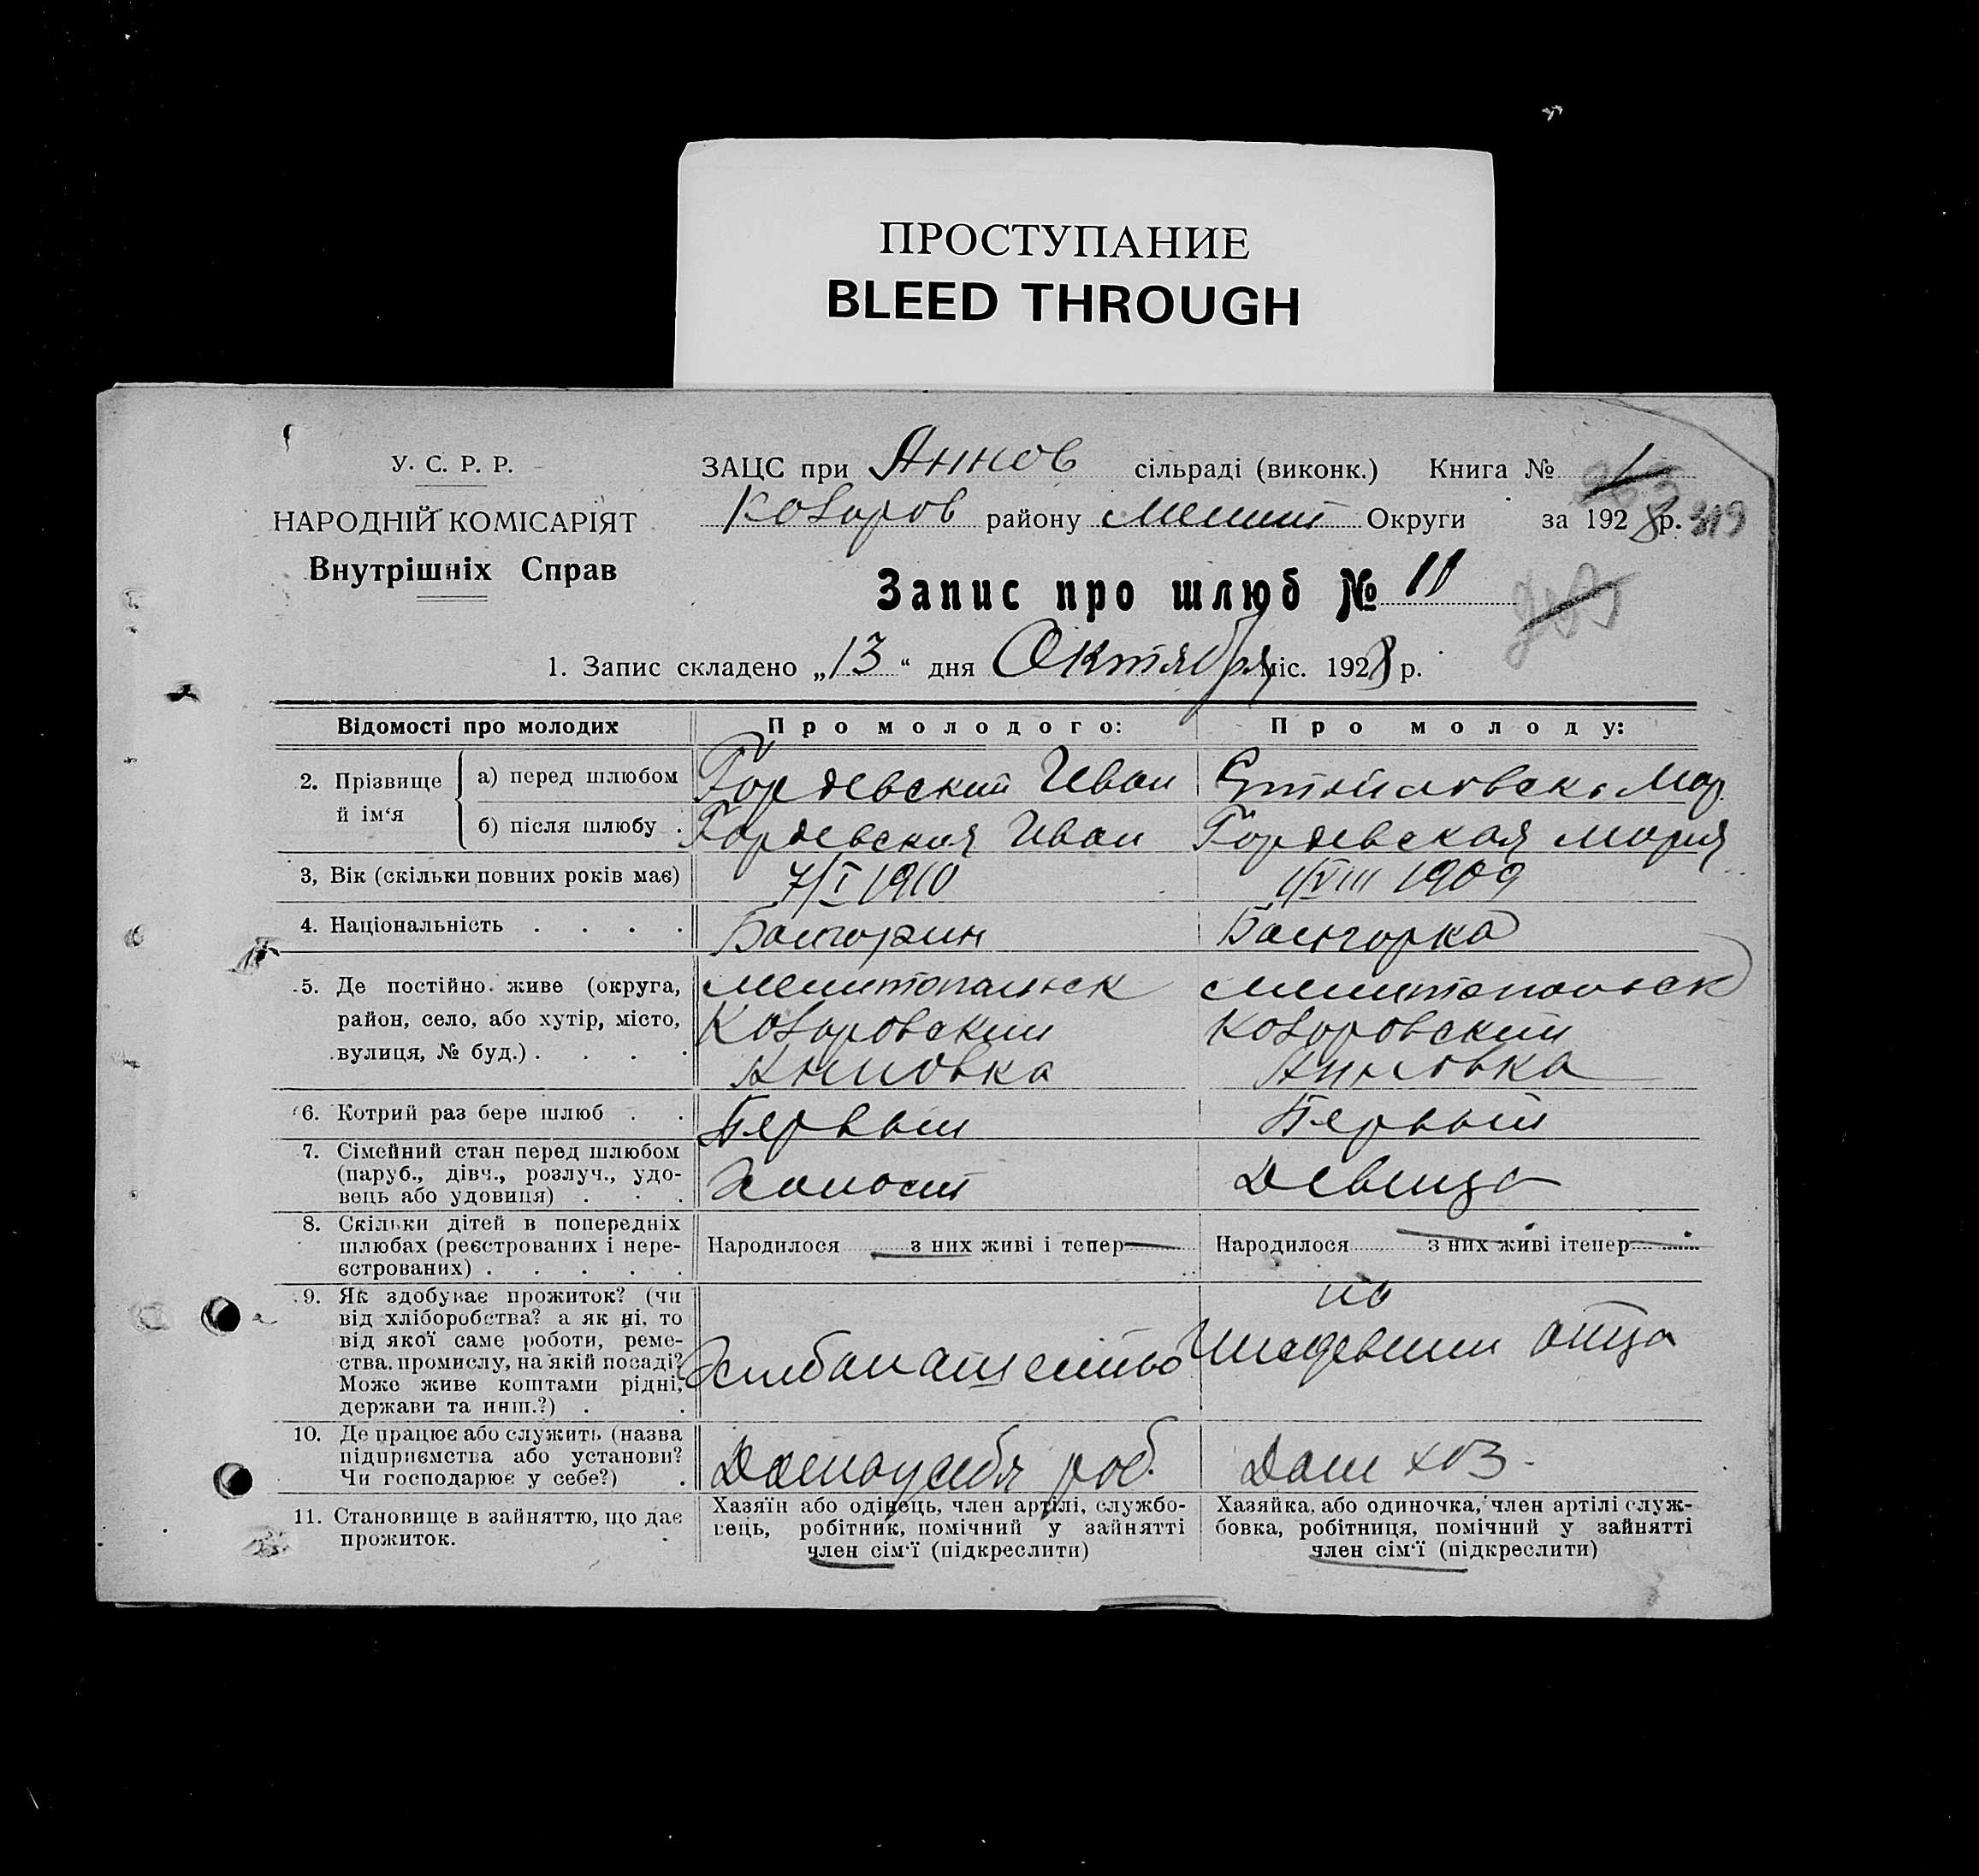 ПРОСТУПАНИЕ
BLEED THROUGH
У. С. Р. Р.
НАРОДНІЙ КОМІСАРІЯТ
Внутрішніх Справ
ЗАЦС при Аннов сільраді (виконк.) Книга № 1
району Мелит Округи за 1928 р. 319
Запис про шлюб № 11
1. Запис складено „13“ дня Октября міс. 1928 р.
Відомості про молодих
Про молодого:
Про молоду:
2. Прізвище й ім‘я
а) перед шлюбом
Гордевский Иван
Мар.
б) після шлюбу .
Гордевская Иван
Гордевская Мария
3, Вік (скільки повних років має)
7/I 1910
1/VIII 1909
4. Національність . . . .
Болгарин
Болгорка
5. Де постійно живе (округа,
район, село, або хутір, місто,
вулиця, № буд.) . . . .
Мелитопольск
Анновка
Мелитопольск
Анновка
6. Котрий раз бере шлюб . .
Первый
Первый
7. Сімейний стан перед шлюбом
(паруб., дівч., розлуч., удо-
вець або удовиця) . . .
Холост
Девица
8. Скільки дітей в попередніх
шлюбах (реєстрованих і нере-
єстрованих) . . . . .
Народилося з них живі і тепер
Народилося з них живі ітепер
9. Як здобуває прожиток? (чи
від хліборобства? а як ні, то
від якої саме роботи, реме-
ства, промислу, на якій посаді?
Може живе коштами рідні,
держави та инш.?) . .
на
отца
10. Де працює або служить (назва
підприємства або установи?
Чи господарює у себе?) .
Дома у себя роб.
Дом хоз.
11. Становище в зайняттю, що дає
прожиток.
Хазяїн або одінець, член артілі, службо-
вець, робітник, помічний у зайнятті
член сім‘ї (підкреслити)
Хазяйка, або одиночка, член артілі служ-
бовка, робітниця, помічний у зайнятті
член сім‘ї (підкреслити)